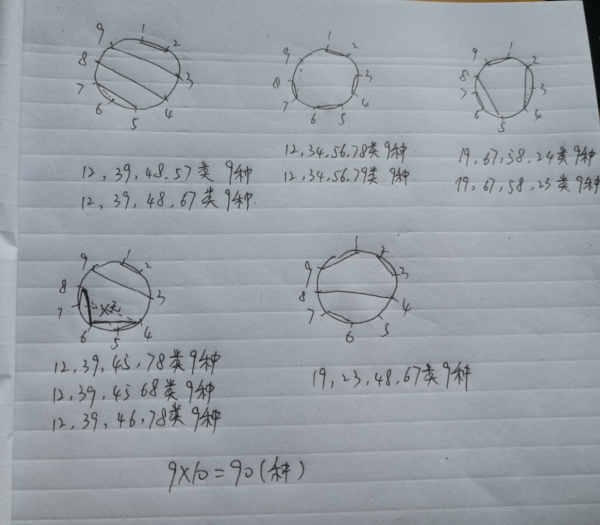 1
2
3
4
5
6
7
8
9
1
2
3
4
5
6
7
8
9
1
2
3
4
5
6
7
8
9
12,39,48,57类9种
12,39,48,67类9种
12,34,56,78类9种
12,34,56,79类9种
19,67,58,24类9种
19,67,58,23类9种
1
2
3
4
5
6
7
8
9
1
2
3
4
5
6
7
8
9
12,39,45,78类9种
12,39,45 68类9种
12,39,46,78类9种
19,23,48,67类9种
9×10=90(种)